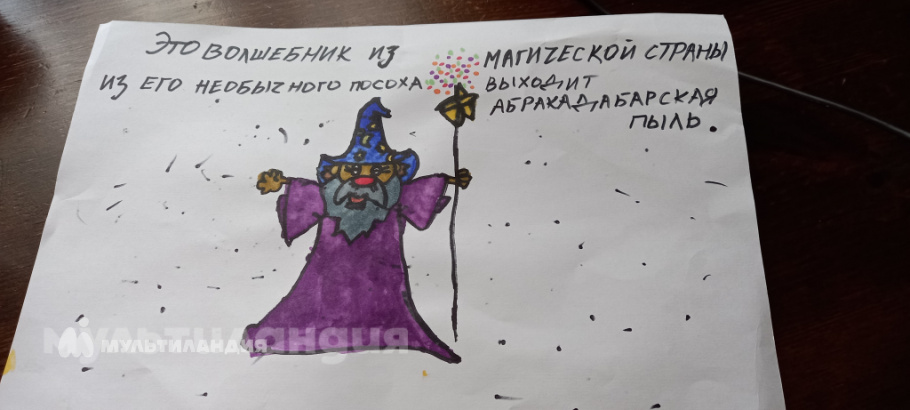 ЭТО ВОЛШЕБНИК ИЗ МАГИЧЕСКОЙ СТРАНЫ
ИЗ ЕГО НЕОБЫЧНОГО ПОСОХА ВЫХОДИТ
АБРАКАДАБАРСКАЯ
ПЫЛЬ.
МУЛЬТИЛАНДИЯ
МУЛЬТИЛАНДИЯ